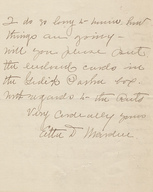 I do so long to know how
things are going —
will you please put
the enclosed cards in
the box
with regards to the
Very Cordially yours
Etta D.